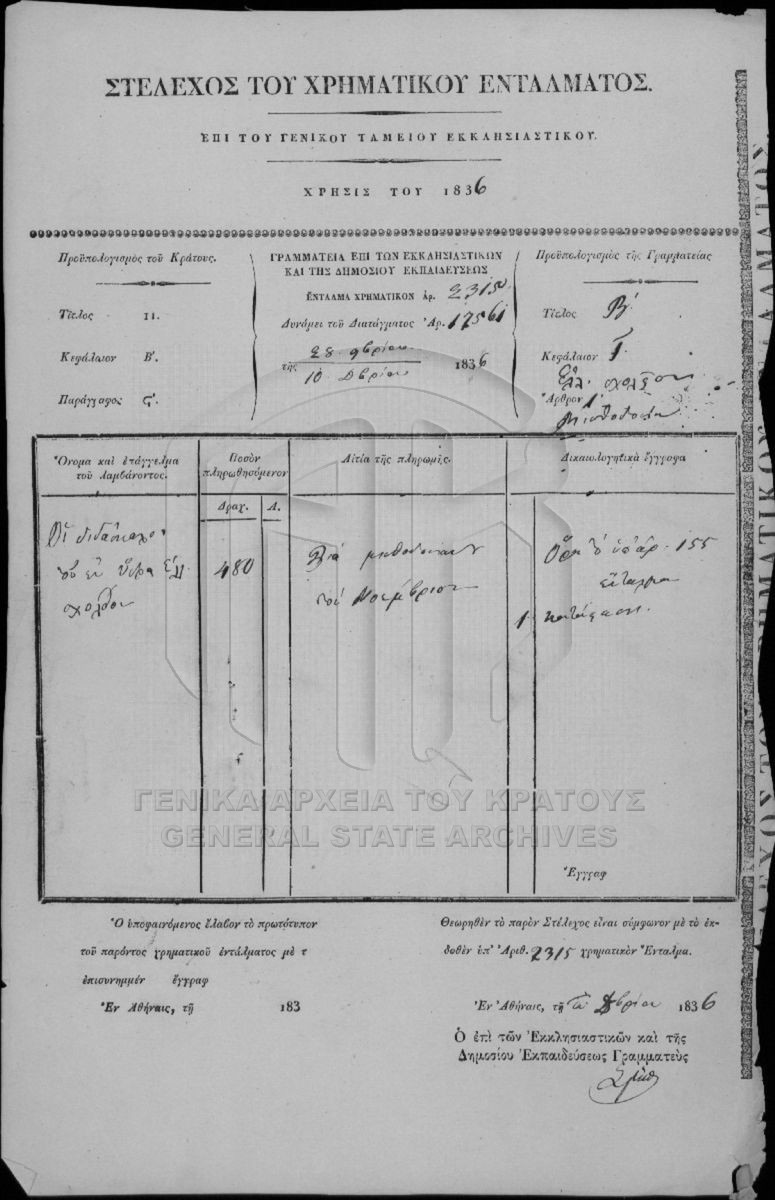 ΣΤΕΛΕΧΟΣ ΤΟΥ ΧΡΗΜΑΤΙΚΟΥ ΕΝΤΑΛΜΑΤΟΣ.
ἘΠΙ ΤΟΥ ΓΕΝΙΚΟΥ ΤΑΜΕΙΟΥ ΕΚΚΛΗΣΙΑΣΤΙΚΟΥ.
ΧΡΗΣΙΣ ΤΟΥ 1836
Προϋπολογισμὸς τοῦ Κράτους.
Τίτλος II.
Κεφάλαιον Β΄.
Παράγραφος ς΄.
ΓΡΑΜΜΑΤΕΙΑ ΕΠΙ ΤΩΝ ΕΚΚΛΗΣΙΑΣΤΙΚΩΝ
ΚΑΙ ΤΗΣ ΔΗΜΟΣΙΟΥ ΕΚΠΑΙΔΕΥΣΕΩΣ
ἘΝΤΑΛΜΑ ΧΡΗΜΑΤΙΚΟΝ ἀρ. 2315
Δυνάμει τοῦ Διατάγματος Ἀρ. 17561
28 9βρίου
τῆς 1836
10 Δβρίου
Προϋπολογισμὸς τῆς Γραμματείας
Τίτλος Β΄
Κεφάλαιον Γ
Ἄρθρον 1
Μισθοδοσία
Ὄνομα καὶ ἐπάγγελμα
τοῦ λαμβάνοντος.
Ποσὸν
πληρωθησόμενον
Αἰτία τῆς πληρωμῆς.
Δικαιολογητικὰ ἔγγραφα
Δραχ. Λ.
Οἱ διδάσκαλοι
480
Διὰ μισθοδοσίαν
τοῦ Νοεμβρίου
Ὅρα τὸ ὑπ' ἀρ. 155
ἔνταλμα
1 κατάστασι.
Ἔγγραφ
Ὁ ὑποφαινόμενος ἔλαβον τὸ πρωτότυπον
τοῦ παρόντος χρηματικοῦ ἐντάλματος μὲ τ
ἐπισυνημμέν ἔγγραφ
Ἐν Ἀθήναις, τῇ 183
Θεωρηθὲν τὸ παρὸν Στέλεχος εἶναι σύμφωνον μὲ τὸ ἐκ-
δοθὲν ὑπ' Ἀριθ. 2315 χρηματικὸν Ἔνταλμα.
Ἐν Ἀθήναις, τῇ Δβρίου 1836
Ὁ ἐπὶ τῶν Ἐκκλησιαστικῶν καὶ τῆς
Δημοσίου Ἐκπαιδεύσεως Γραμματεὺς
ΓΕΝΙΚΑ ΑΡΧΕΙΑ ΤΟΥ ΚΡΑΤΟΥΣ
GENERAL STATE ARCHIVES